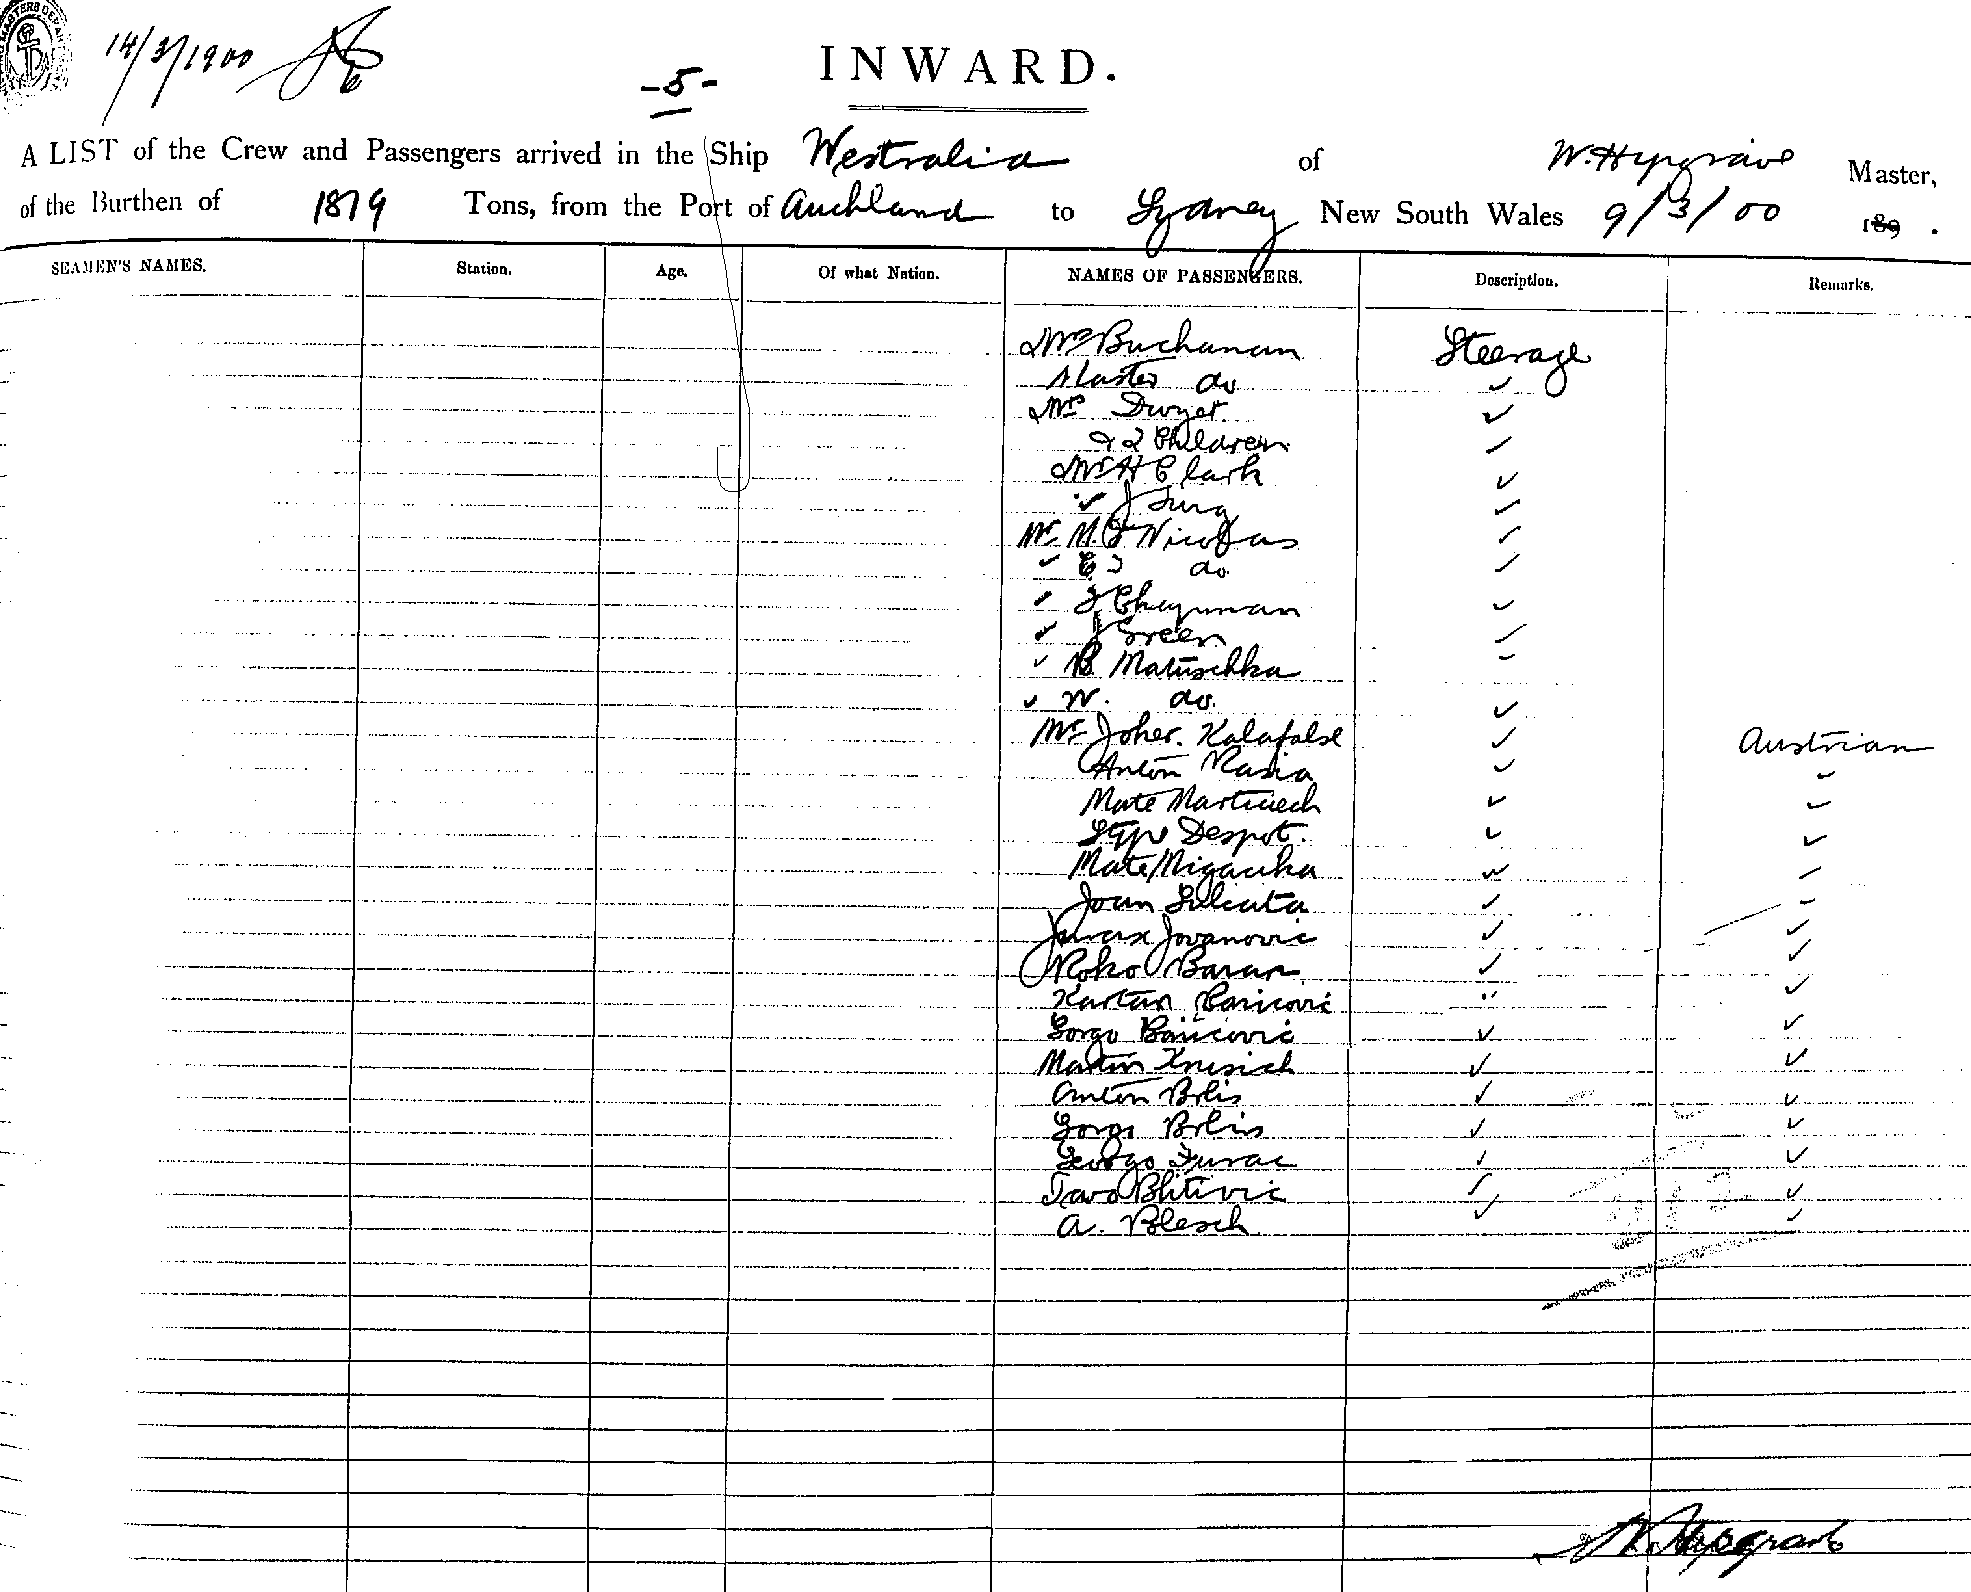 14/3/1900
-5-
INWARD.
A LIST of the Crew and Passengers arrived in the Ship Westralia of W. Hypgrave Master,
of the Burthen of 1879 Tons, from the Port of Auckland to Sydney New South Wales 9/3/00 189 .
SEAMEN'S NAMES. Station. Age. Of what Nation. NAMES OF PASSENGERS. Description. Remarks.
Mrs Buchanan Steerage
Master do ✓
Mrs Dwyer ✓
& 2 Children ✓
Mr H Clark ✓
✓ J ✓
Mr M. Nicolas ✓
✓ E do ✓
✓ J Chapman ✓
✓ J Green ✓
✓ B Matuschka ✓
✓ W. do. ✓
Mr Joher. Kalafalse ✓ Austrian
Anton Rasia ✓ ✓
Mate Martinech ✓ ✓
Stipe Despot. ✓ ✓
Mate ✓ ✓
Joan ✓ ✓
Jovanovic ✓ ✓
Roko Baran ✓ ✓
Baricovic ✓ ✓
Gorgo Baricovic ✓ ✓
Martin ✓ ✓
Anton Bolis ✓ ✓
Gorgo Bolis ✓ ✓
Georgo Furac ✓ ✓
Blitivic ✓ ✓
A. Blesch ✓ ✓